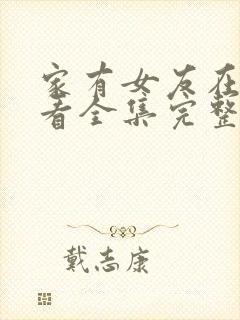 家有女友在
看全集完整
戴志康